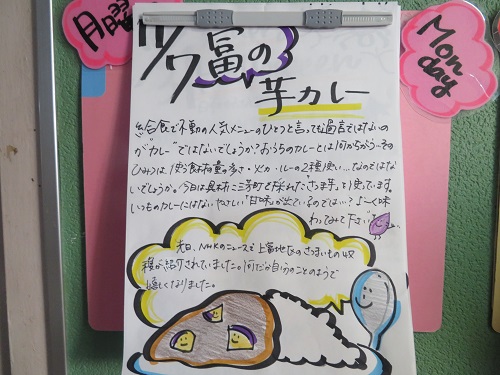 月曜
Mon
day
富の
芋カレー
給食で不動の人気メニューのひとつと言っても過言ではないの
が"カレー"ではないでしょうか?おうちのカレーとは何かちがう…その
ひみつは、使う食材の量の多さ・火力・ルーの2種使い…なのではな
いでしょうか。今日は具材に三芳町で採れた"さつま芋"を使っています。
いつものカレーにはない、やさしい「甘味」が出ているのでは…?よ〜く味
わってみて下さい
先日、NHKのニュースで上富地区のさつまいもの収
穫が紹介されていました。何だか自分のことのようで
嬉しくなりました。